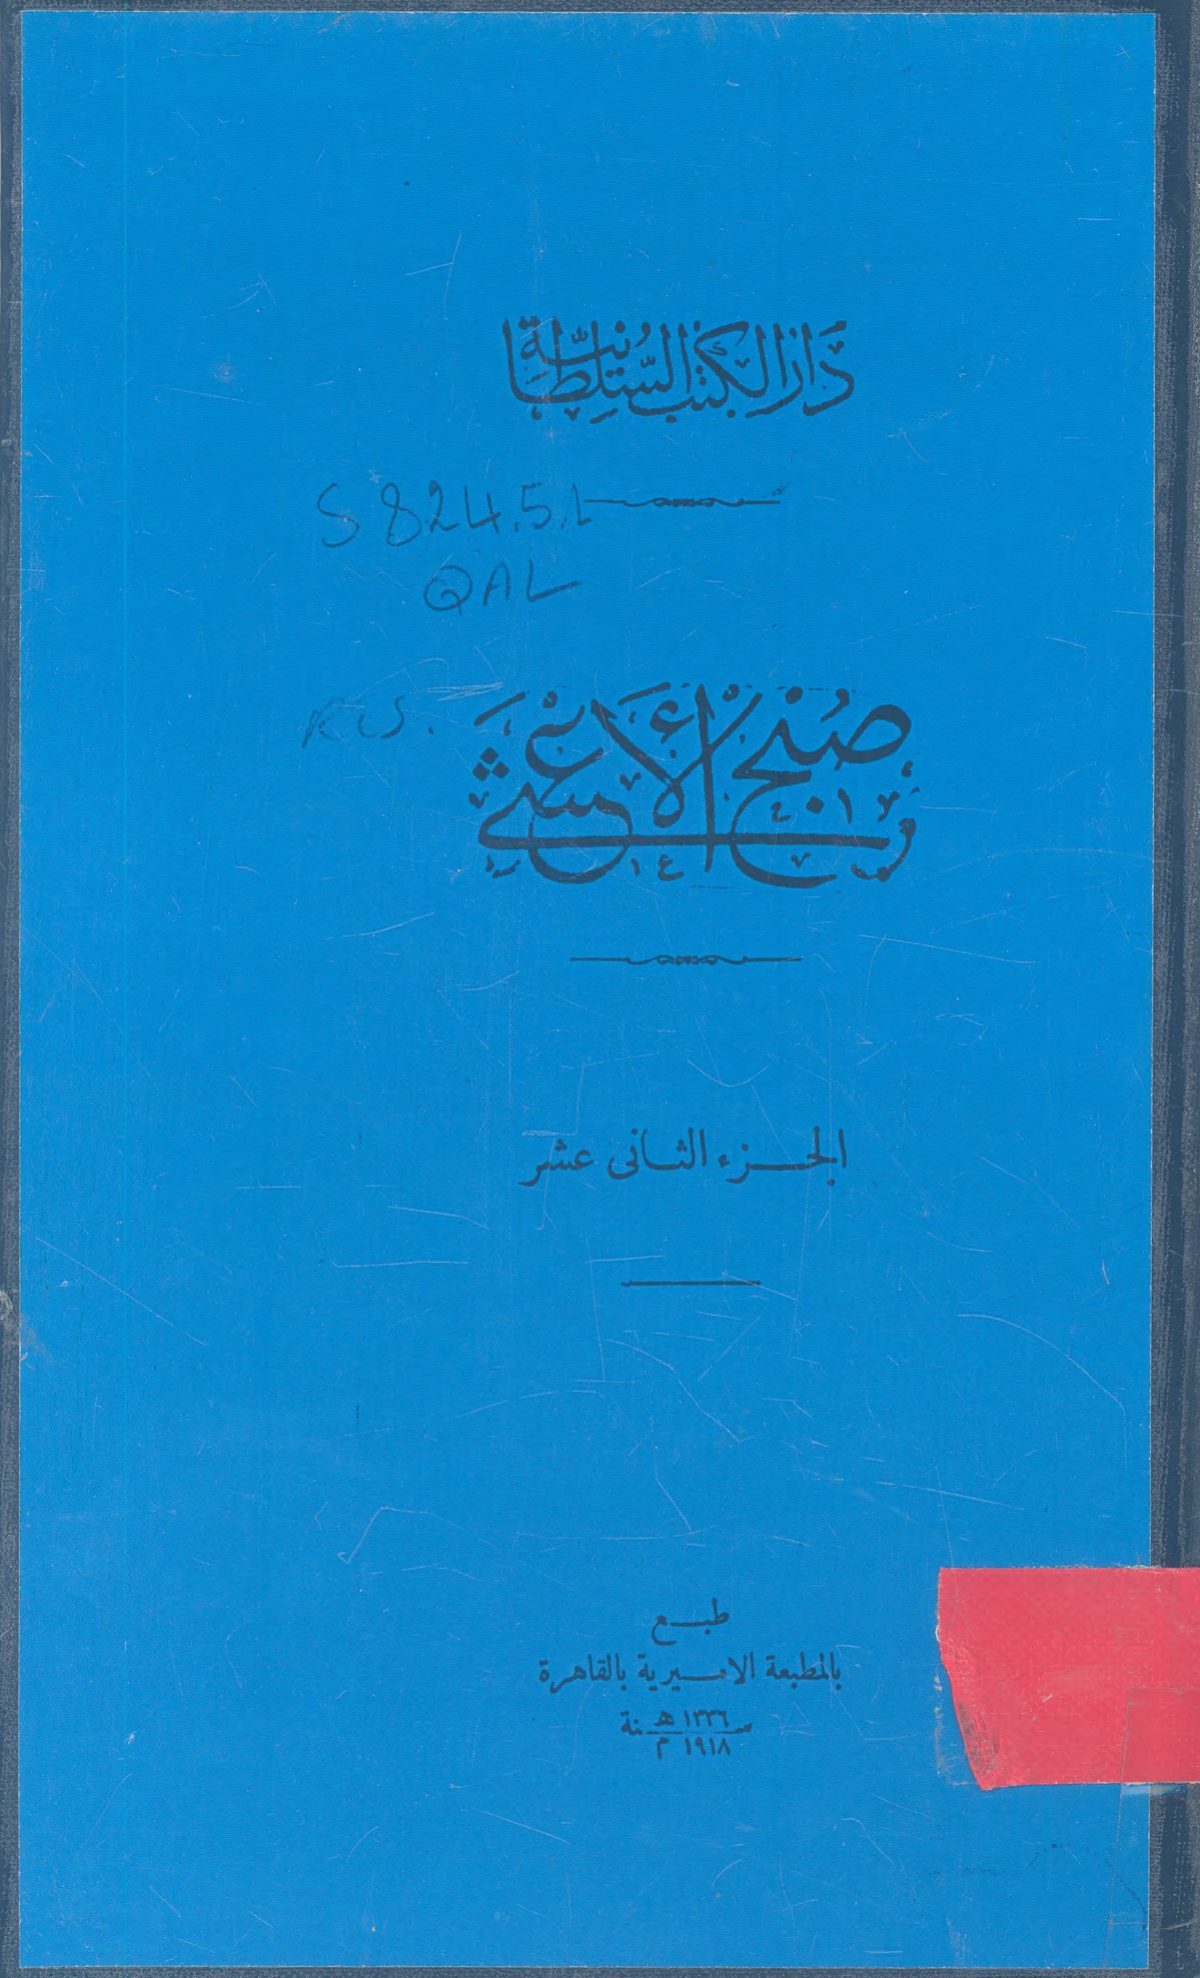 دَارُ الكُتُبِ السُّلْطَانِيَّة
S 824.51
QAL
صُبْحُ الأَعْشَى
الجزء الثانى عشر
طبع
بالمطبعة الاميرية بالقاهرة
سنة ١٣٣٦ هـ
١٩١٨ م